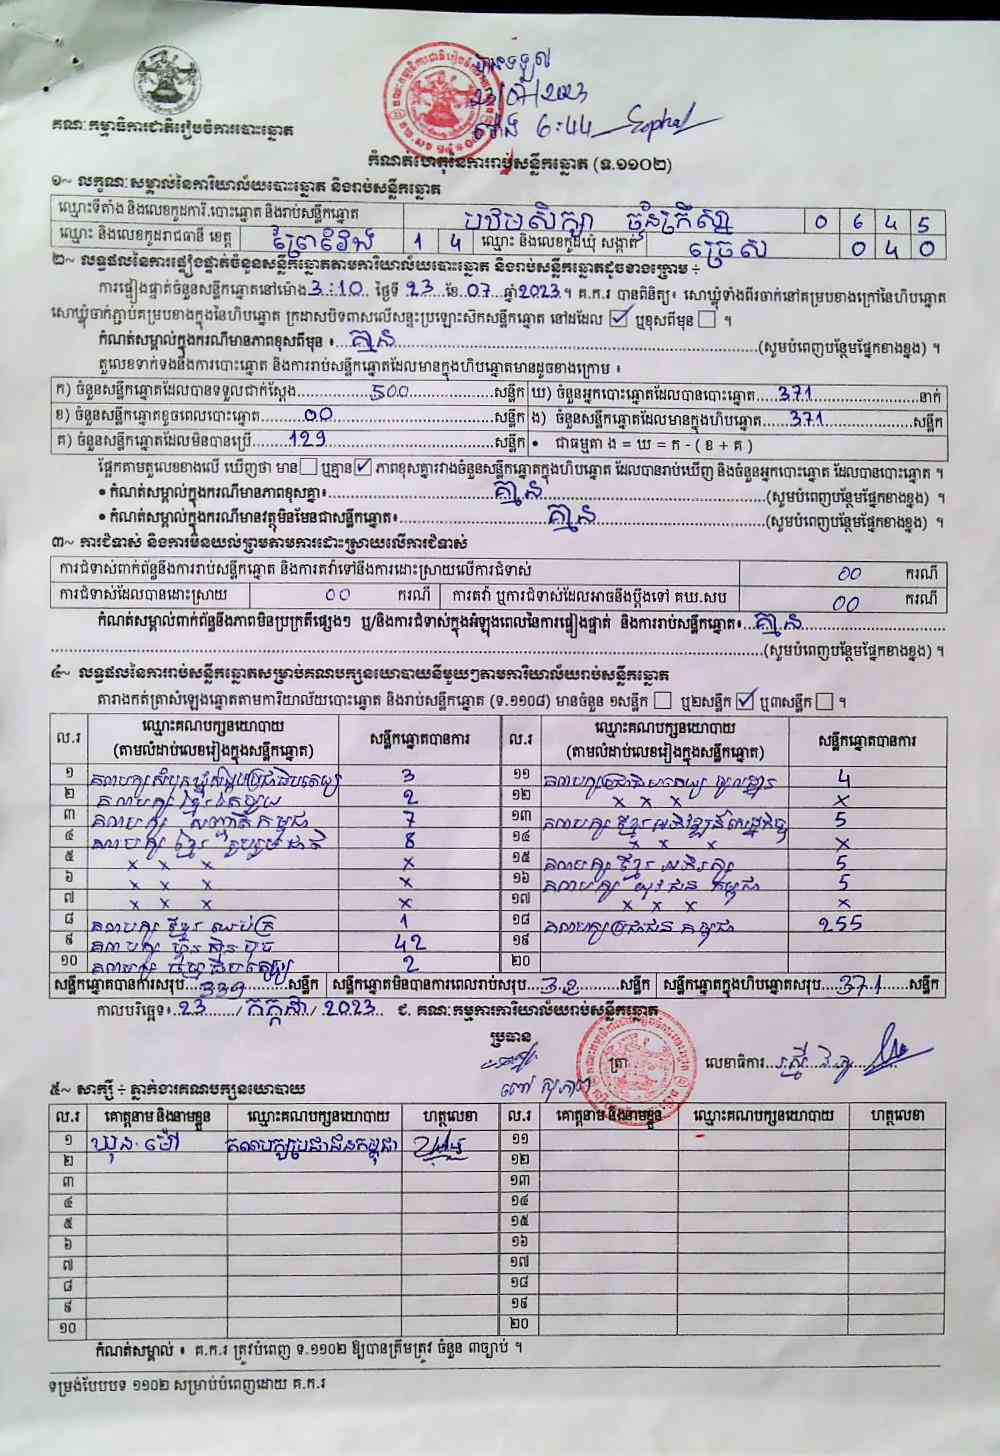 បានទទួល
23/07/2023
ម៉ោង 6:44 Sophal
គណៈកម្មាធិការជាតិរៀបចំការបោះឆ្នោត
កំណត់ហេតុនៃការរាប់សន្លឹកឆ្នោត (ទ.១១០២)
១~ លក្ខណៈសម្គាល់នៃការិយាល័យបោះឆ្នោត និងរាប់សន្លឹកឆ្នោត
ឈ្មោះទីតាំង និងលេខកូដការិ.បោះឆ្នោត និងរាប់សន្លឹកឆ្នោត បឋមសិក្សា 0 6 4 5
ឈ្មោះ និងលេខកូដរាជធានី ខេត្ត ព្រៃវែង 1 4 ឈ្មោះ និងលេខកូដឃុំ សង្កាត់ ច្រេស 0 4 0
២~ លទ្ធផលនៃការផ្ទៀងផ្ទាត់ចំនួនសន្លឹកឆ្នោតតាមការិយាល័យបោះឆ្នោត និងរាប់សន្លឹកឆ្នោតដូចខាងក្រោម ÷
ការផ្ទៀងផ្ទាត់ចំនួនសន្លឹកឆ្នោតនៅម៉ោង 3:10 ថ្ងៃទី 23 ខែ 07 ឆ្នាំ 2023 ។ គ.ក.រ បានពិនិត្យ៖ សោឃ្លុំទាំងពីរចាក់នៅគម្របខាងក្រៅនៃហិបឆ្នោត
សោឃ្លុំចាក់ភ្ជាប់គម្របខាងក្នុងនៃហិបឆ្នោត ក្រដាសបិទពាសលើសន្ទះប្រឡោះសិកសន្លឹកឆ្នោត នៅដដែល ☑ ឬខុសពីមុន ☐ ។
កំណត់សម្គាល់ក្នុងករណីមានភាពខុសពីមុន ៖ គ្មាន (សូមបំពេញបន្ថែមផ្នែកខាងខ្នង) ។
តួលេខទាក់ទងនឹងការបោះឆ្នោត និងការរាប់សន្លឹកឆ្នោតដែលមានក្នុងហិបឆ្នោតមានដូចខាងក្រោម ៖
ក) ចំនួនសន្លឹកឆ្នោតដែលបានទទួលជាក់ស្តែង 500 សន្លឹក ឃ) ចំនួនអ្នកបោះឆ្នោតដែលបានបោះឆ្នោត 371 នាក់
ខ) ចំនួនសន្លឹកឆ្នោតខូចពេលបោះឆ្នោត 00 សន្លឹក ង) ចំនួនសន្លឹកឆ្នោតដែលមានក្នុងហិបឆ្នោត 371 សន្លឹក
គ) ចំនួនសន្លឹកឆ្នោតដែលមិនបានប្រើ 129 សន្លឹក • ជាធម្មតា ង = ឃ = ក - ( ខ + គ )
ផ្អែកតាមតួលេខខាងលើ ឃើញថា មាន ☐ ឬគ្មាន ☑ ភាពខុសគ្នារវាងចំនួនសន្លឹកឆ្នោតក្នុងហិបឆ្នោត ដែលបានរាប់ឃើញ និងចំនួនអ្នកបោះឆ្នោត ដែលបានបោះឆ្នោត ។
• កំណត់សម្គាល់ក្នុងករណីមានភាពខុសគ្នា៖ គ្មាន (សូមបំពេញបន្ថែមផ្នែកខាងខ្នង) ។
• កំណត់សម្គាល់ក្នុងករណីមានវត្ថុមិនមែនជាសន្លឹកឆ្នោត៖ គ្មាន (សូមបំពេញបន្ថែមផ្នែកខាងខ្នង) ។
៣~ ការជំទាស់ និងការមិនយល់ព្រមតាមការដោះស្រាយលើការជំទាស់
ការជំទាស់ពាក់ព័ន្ធនឹងការរាប់សន្លឹកឆ្នោត និងការតវ៉ាទៅនឹងការដោះស្រាយលើការជំទាស់ 00 ករណី
ការជំទាស់ដែលបានដោះស្រាយ 00 ករណី ការតវ៉ា ឬការជំទាស់ដែលអាចនឹងប្តឹងទៅ គឃ.សប 00 ករណី
កំណត់សម្គាល់ពាក់ព័ន្ធនឹងភាពមិនប្រក្រតីផ្សេងៗ ឬ/និងការជំទាស់ក្នុងអំឡុងពេលនៃការផ្ទៀងផ្ទាត់ និងការរាប់សន្លឹកឆ្នោត៖ គ្មាន
(សូមបំពេញបន្ថែមផ្នែកខាងខ្នង) ។
៤~ លទ្ធផលនៃការរាប់សន្លឹកឆ្នោតសម្រាប់គណបក្សនយោបាយនីមួយៗតាមការិយាល័យរាប់សន្លឹកឆ្នោត
តារាងកត់ត្រាសំឡេងឆ្នោតតាមការិយាល័យបោះឆ្នោត និងរាប់សន្លឹកឆ្នោត (ទ.១១០៨) មានចំនួន ១សន្លឹក ☐ ឬ២សន្លឹក ☑ ឬ៣សន្លឹក ☐ ។
ល.រ ឈ្មោះគណបក្សនយោបាយ (តាមលំដាប់លេខរៀងក្នុងសន្លឹកឆ្នោត) សន្លឹកឆ្នោតបានការ ល.រ ឈ្មោះគណបក្សនយោបាយ (តាមលំដាប់លេខរៀងក្នុងសន្លឹកឆ្នោត) សន្លឹកឆ្នោតបានការ
១ គណបក្សសំបុកឃ្មុំសង្គមប្រជាធិបតេយ្យ 3 ១១ គណបក្សប្រជាធិបតេយ្យមូលដ្ឋាន 4
២ គណបក្ស ខ្មែរឯកភាព 2 ១២ x x x x
៣ គណបក្ស សញ្ជាតិកម្ពុជា 7 ១៣ គណបក្ស ខ្មែរអភិវឌ្ឍន៍សេដ្ឋកិច្ច 5
៤ គណបក្ស ខ្មែររួបរួមជាតិ 8 ១៤ x x x x
៥ x x x x ១៥ គណបក្ស ខ្មែរ អភិរក្ស 5
៦ x x x x ១៦ គណបក្ស យុវជន កម្ពុជា 5
៧ x x x x ១៧ x x x x
៨ គណបក្ស ខ្មែរ ឈប់ក្រ 1 ១៨ គណបក្សប្រជាជន កម្ពុជា 255
៩ គណបក្ស ហ៊្វុនស៊ិនប៉ិច 42 ១៩
១០ គណបក្ស ធម្មាធិបតេយ្យ 2 ២០
សន្លឹកឆ្នោតបានការសរុប 339 សន្លឹក សន្លឹកឆ្នោតមិនបានការពេលរាប់សរុប 32 សន្លឹក សន្លឹកឆ្នោតក្នុងហិបឆ្នោតសរុប 371 សន្លឹក
កាលបរិច្ឆេទ៖ 23 / កក្កដា / 2023 ជ. គណៈកម្មការការិយាល័យរាប់សន្លឹកឆ្នោត
ប្រធាន
ត្រា លេខាធិការ
៥~ សាក្សី ÷ ភ្នាក់ងារគណបក្សនយោបាយ
ល.រ គោត្តនាម និងនាមខ្លួន ឈ្មោះគណបក្សនយោបាយ ហត្ថលេខា ល.រ គោត្តនាម និងនាមខ្លួន ឈ្មោះគណបក្សនយោបាយ ហត្ថលេខា
១ ឃុន ម៉ៅ គណបក្សប្រជាជនកម្ពុជា ១១
២ ១២
៣ ១៣
៤ ១៤
៥ ១៥
៦ ១៦
៧ ១៧
៨ ១៨
៩ ១៩
១០ ២០
កំណត់សម្គាល់ ៖ គ.ក.រ ត្រូវបំពេញ ទ.១១០២ ឱ្យបានត្រឹមត្រូវ ចំនួន ៣ច្បាប់ ។
ទម្រង់បែបបទ ១១០២ សម្រាប់បំពេញដោយ គ.ក.រ